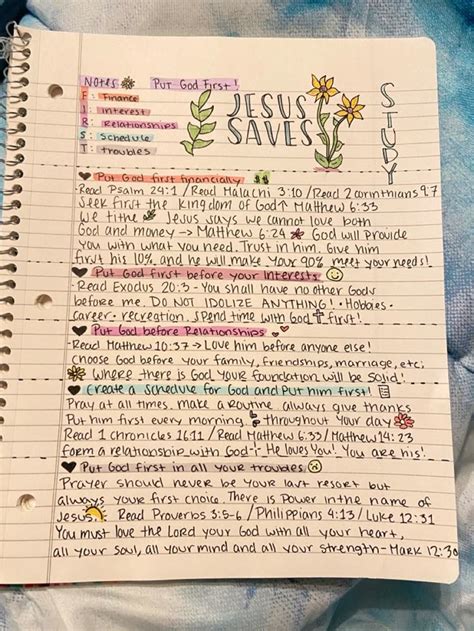 Notes Put God First!
F: Finance
I: Interest
R: Relationships
S: Schedule
T: troubles
JESUS
SAVES
STUDY
Put God first financially $$
-Read Psalm 24:1 /Read Malachi 3:10 /Read 2 corinthians 9:7
Seek first the kingdom of God↑ Matthew 6:33
We tithe Jesus says we cannot love both
God and money → Matthew 6:24 God will Provide
You with what you need. Trust in him. Give him
first his 10%, and he will make your 90% meet your needs!
Put God first before your Interests
-Read Exodus 20:3 - You shall have no other Gods
before me. DO NOT IDOLIZE ANYTHING! · Hobbies ·
career · recreation. spend time with God first!
Put God before Relationships
-Read Matthew 10:37 → Love him before anyone else!
choose God before your family, friendships, marriage, etc;
Where there is God, your foundation will be solid!
Create a schedule for God and Put him first!
Pray at all times. make a routine always give thanks
Put him first every morning throughout your day
Read 1 chronicles 16:11 / Read Matthew 6:33 / Matthew 14:23
form a relationship with God - He loves You! You are his!
Put God first in all your troubles
Prayer should never be your last resort but
always your first choice. There is Power in the name of
Jesus. Read Proverbs 3:5-6 / Philippians 4:13 / Luke 12:31
You must love the Lord your God with all your heart,
all your soul, all your mind and all your strength - Mark 12:30